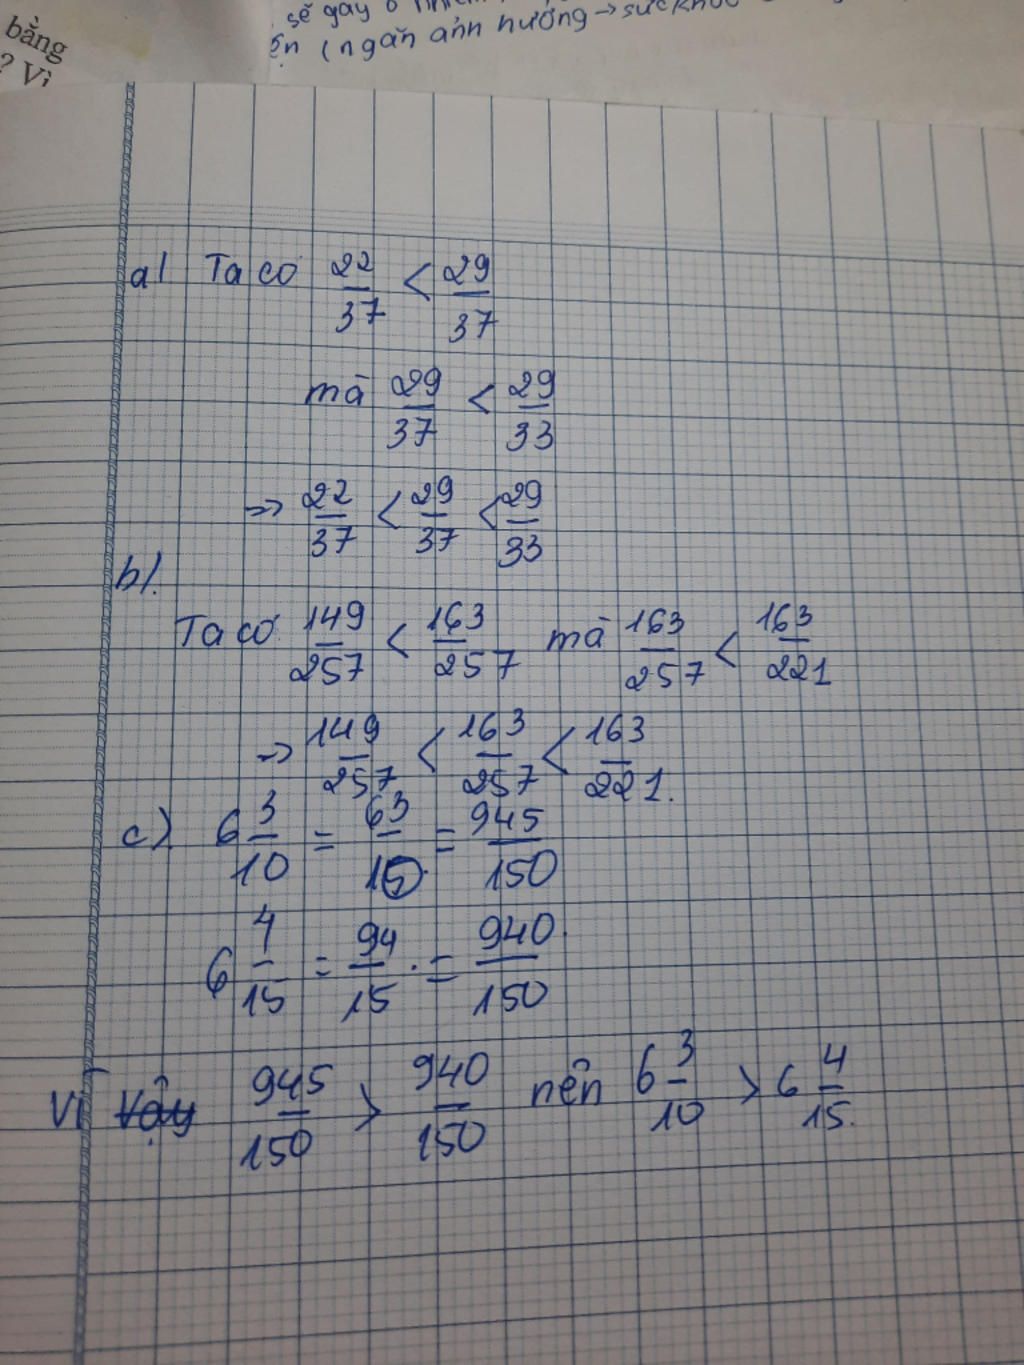 bằng
? Vì
sẽ gây ô nhiễm
(ngăn ảnh hưởng → sức khoẻ
a) Ta có 22/37 < 29/37
mà 29/37 < 29/33
=> 22/37 < 29/37 < 29/33
b).
Ta có 149/257 < 163/257 mà 163/257 < 163/221
=> 149/257 < 163/257 < 163/221.
c) 6 3/10 = 63/10 = 945/150
6 4/15 = 94/15 = 940/150
Vì 945/150 > 940/150 nên 6 3/10 > 6 4/15.